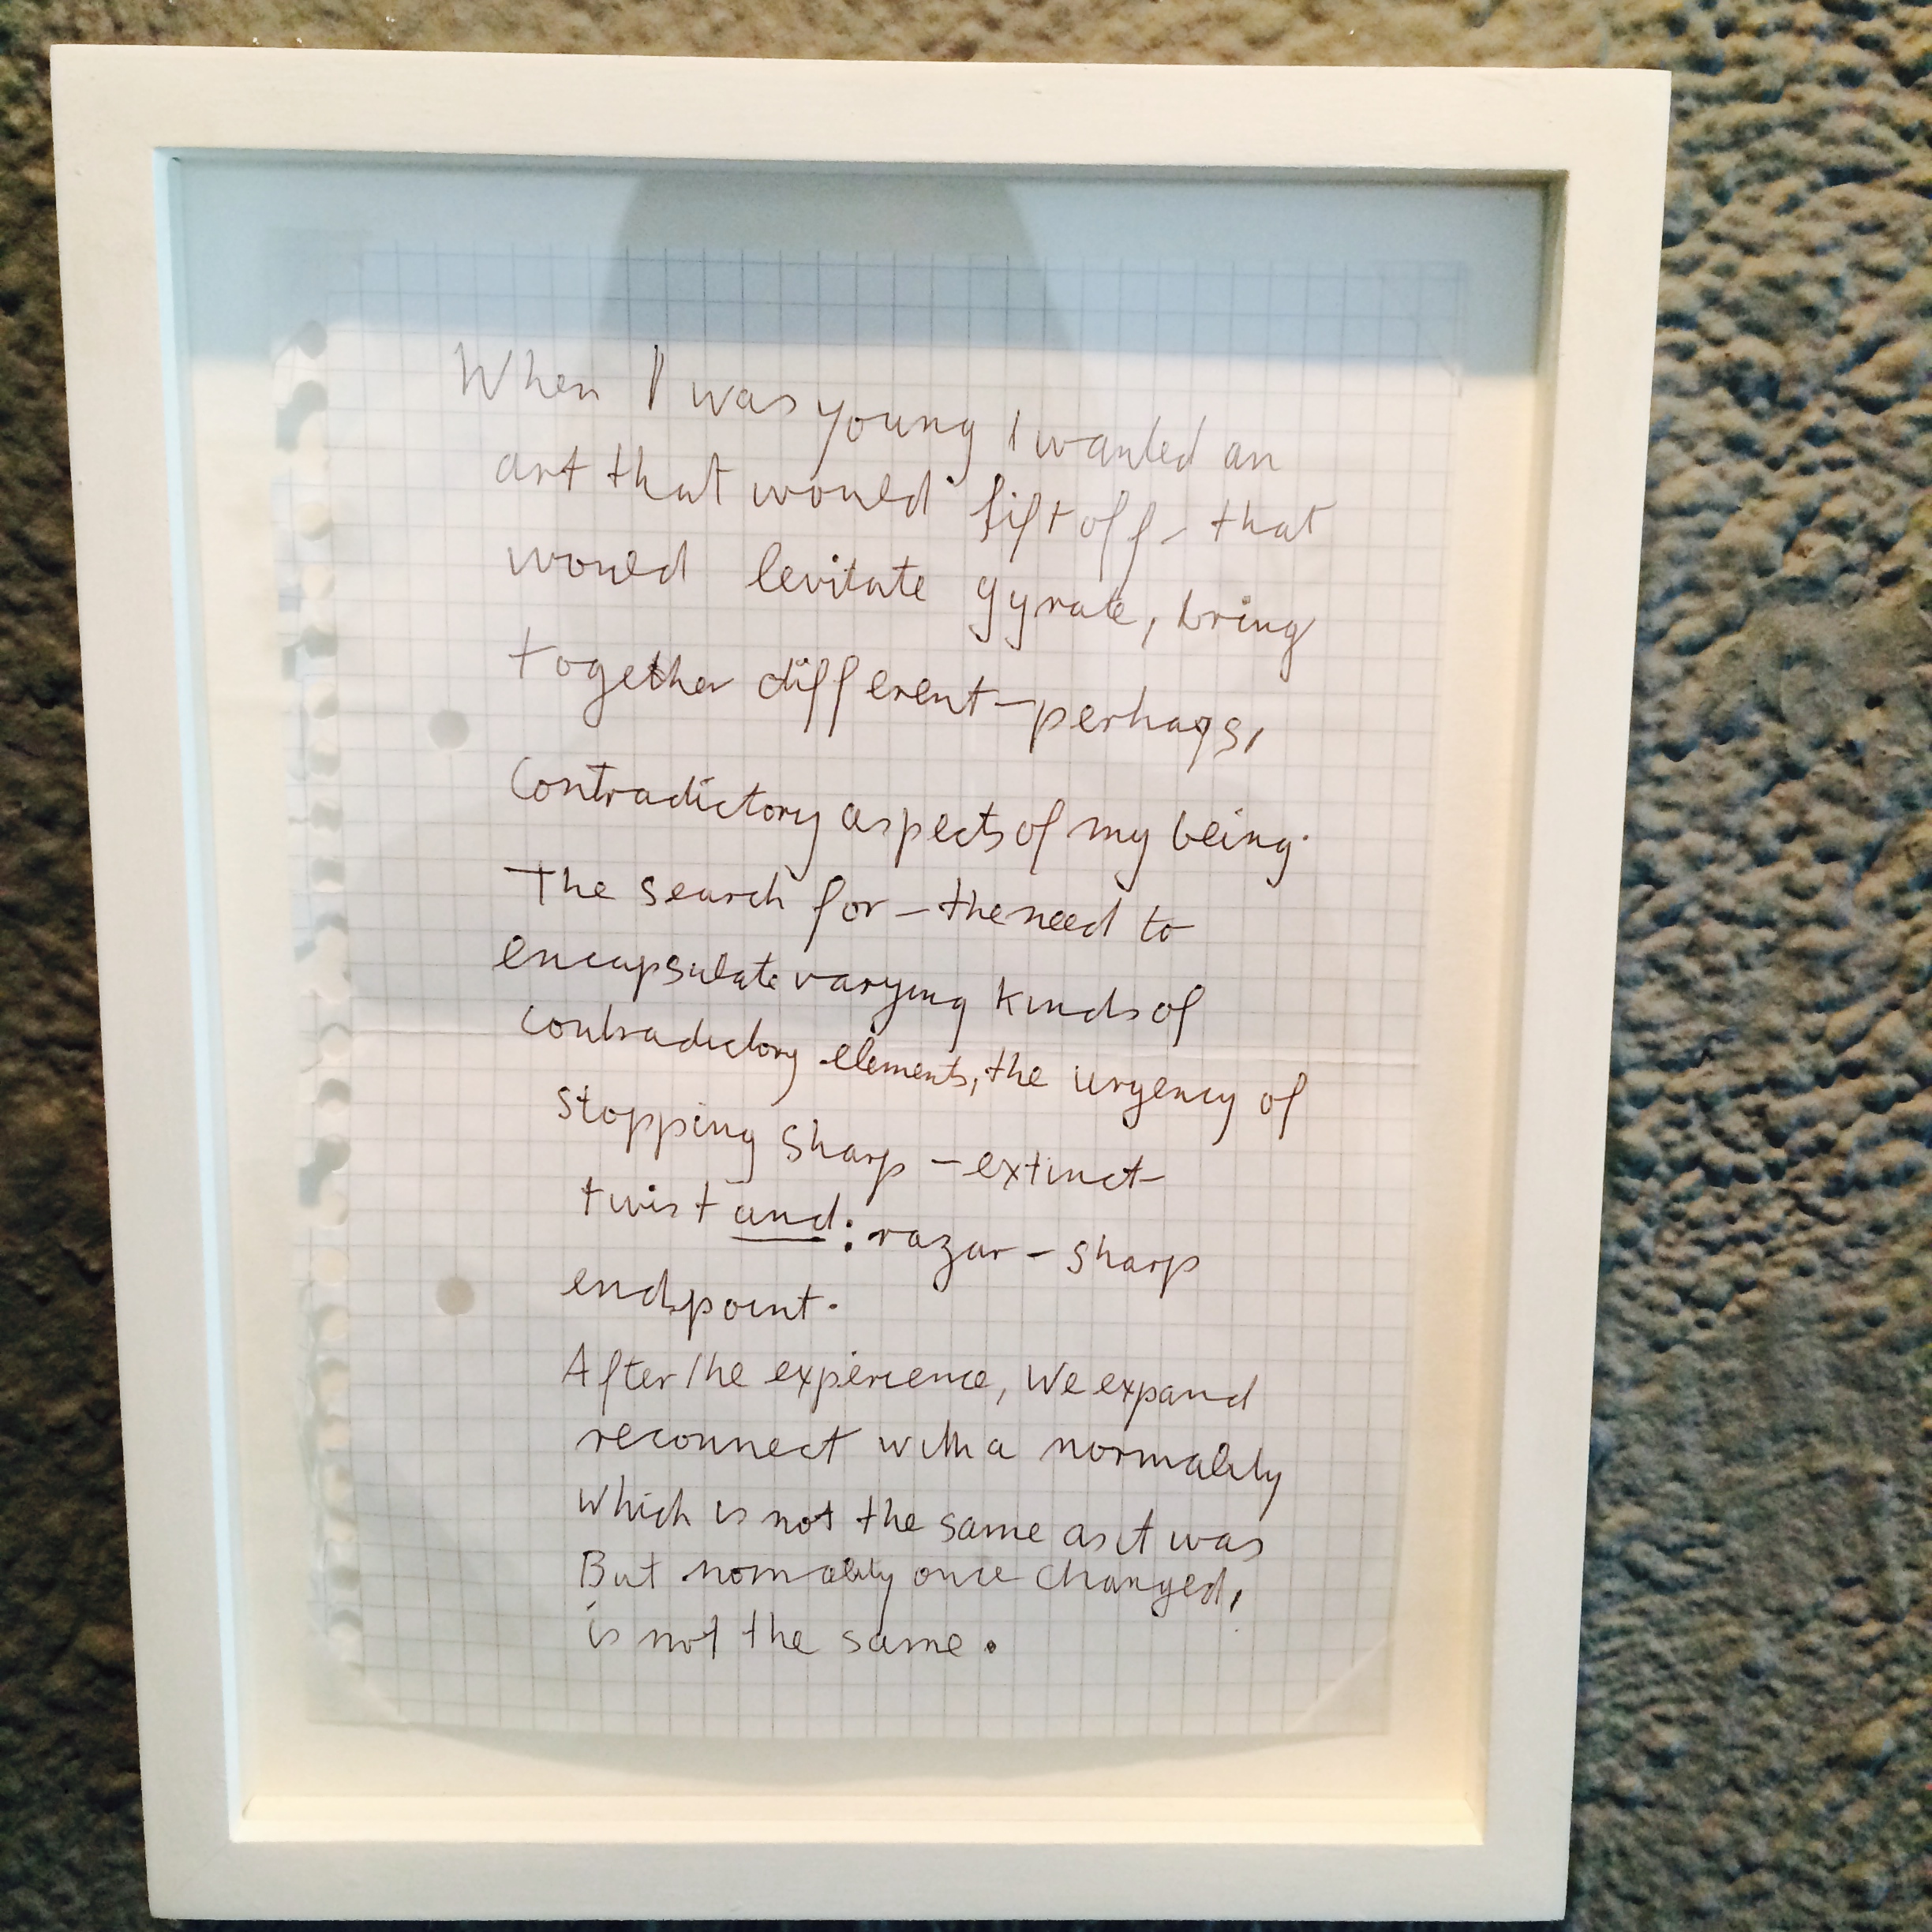 When I was young I wanted an
art that would lift off - that
would levitate gyrate, bring
together different - perhaps,
Contradictory aspects of my being.
The search for - the need to
encapsulate varying kinds of
contradictory elements, the urgency of
stopping sharp - extinct
twist and: razar - sharp
endpoint.
After the experience, We expand
reconnect with a normality
which is not the same as it was
But normality once changed,
is not the same.